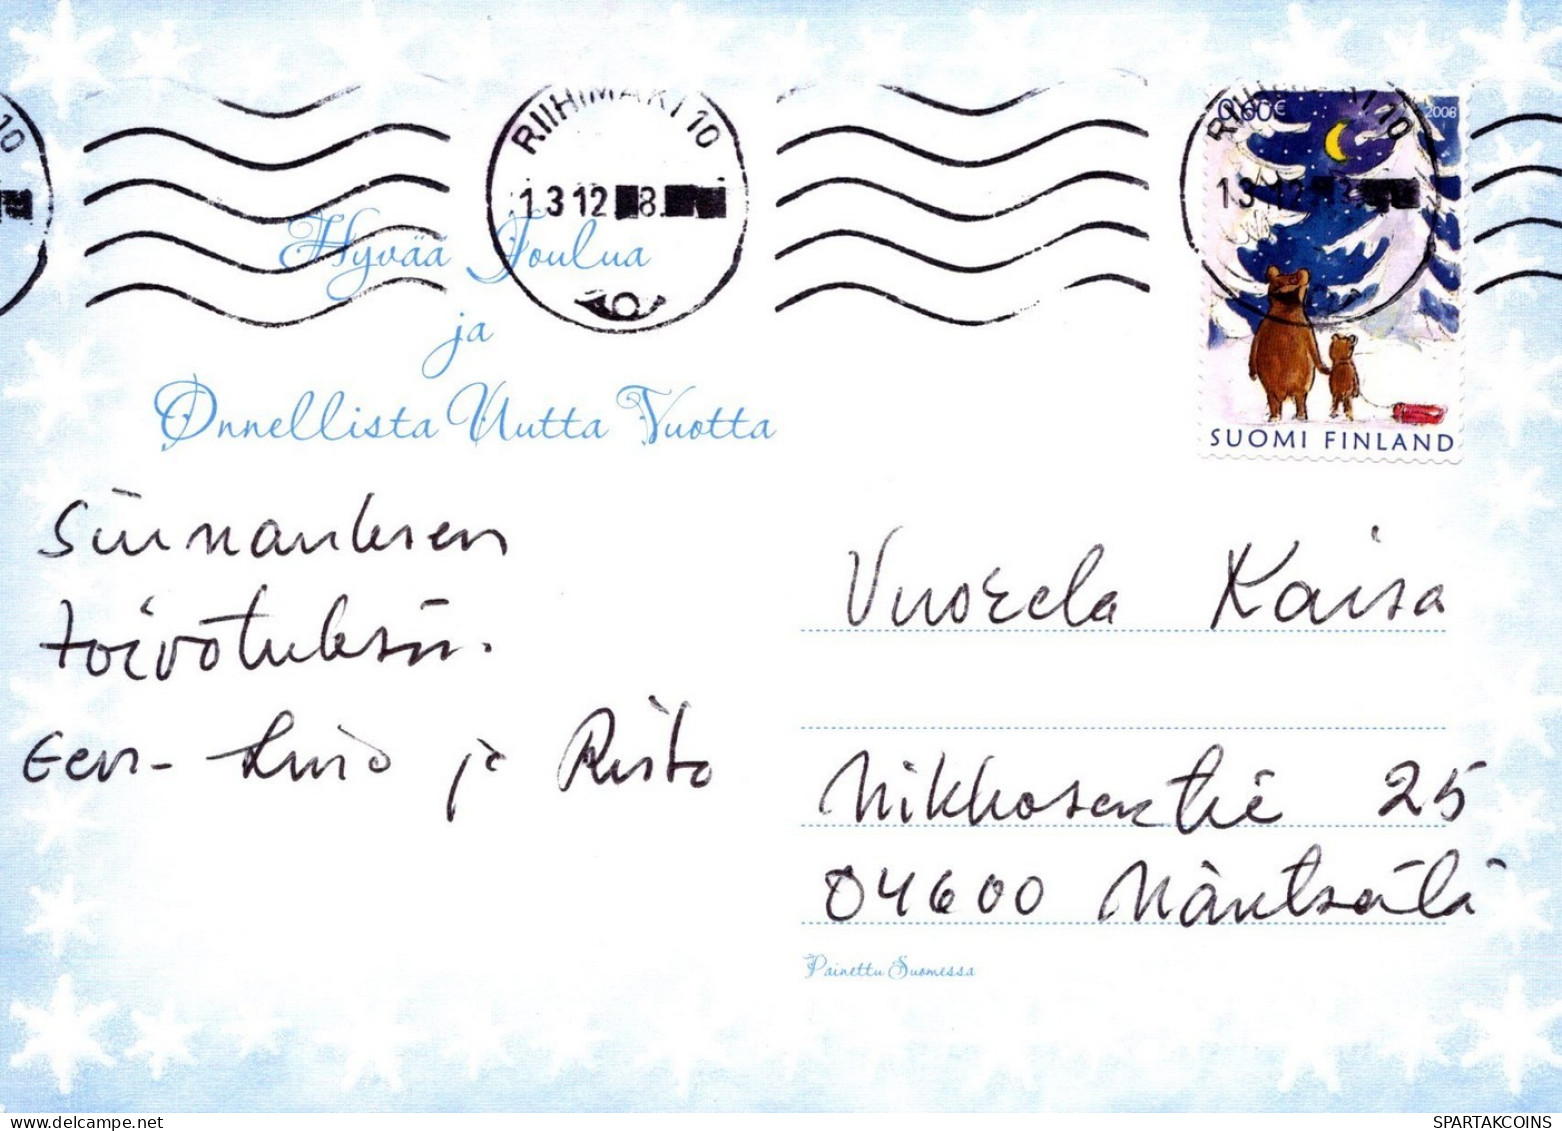 10
RIIHIMÄKI 10
13 12 8.
RIIHIMÄKI 10
0,60€
2008
13 12 8
Hyvää Joulua
ja
Onnellista Uutta Vuotta
SUOMI FINLAND
Siunauksen
toivotuksin.
Eeva- ja Risto
Vuorela Kaisa
25
04600 Mäntsälä
Painettu Suomessa
SPARTAKCOINS